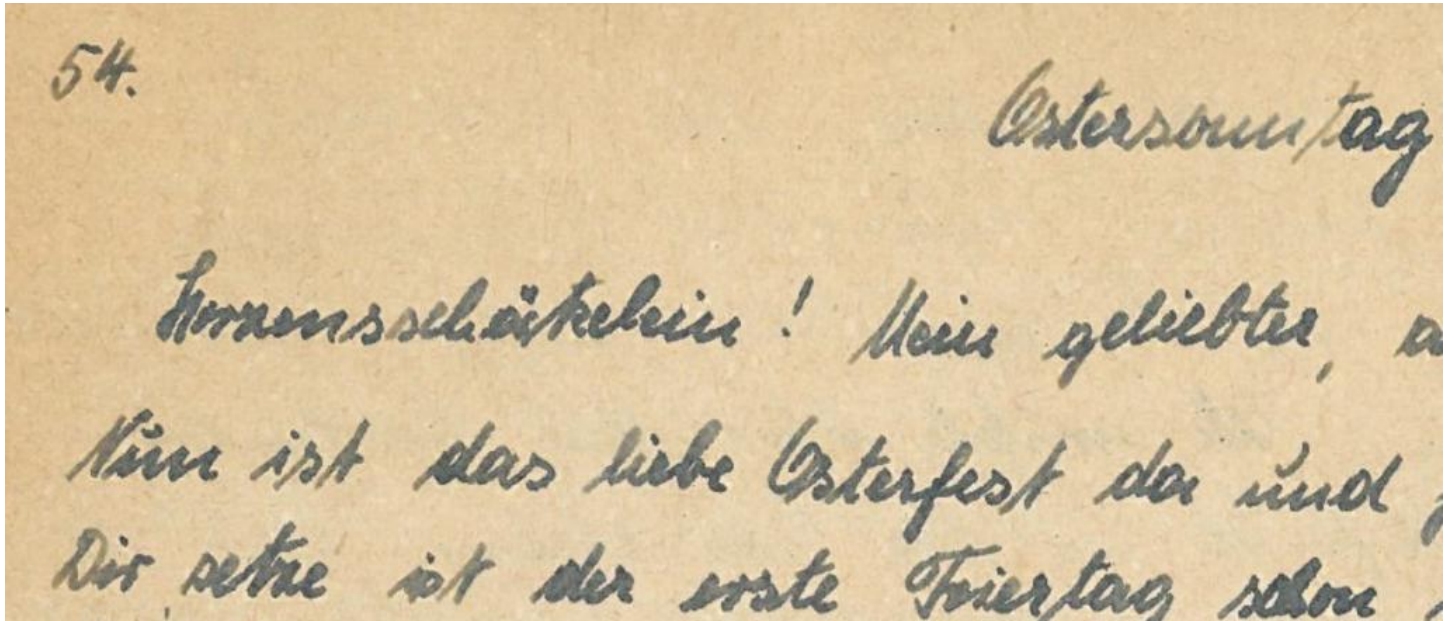 54.
Ostersonntag
Herzensschätzelein! Mein geliebter,
Nun ist das liebe Osterfest da und
Dir setze ist der erste Feiertag schon